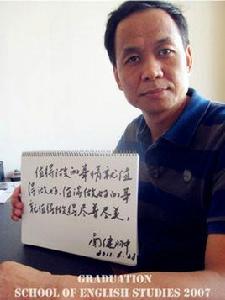 值得做的事情就值
得做好,值得做好的事
就值得做得尽善尽美。
GRADUATION
SCHOOL OF ENGLISH STUDIES 2007